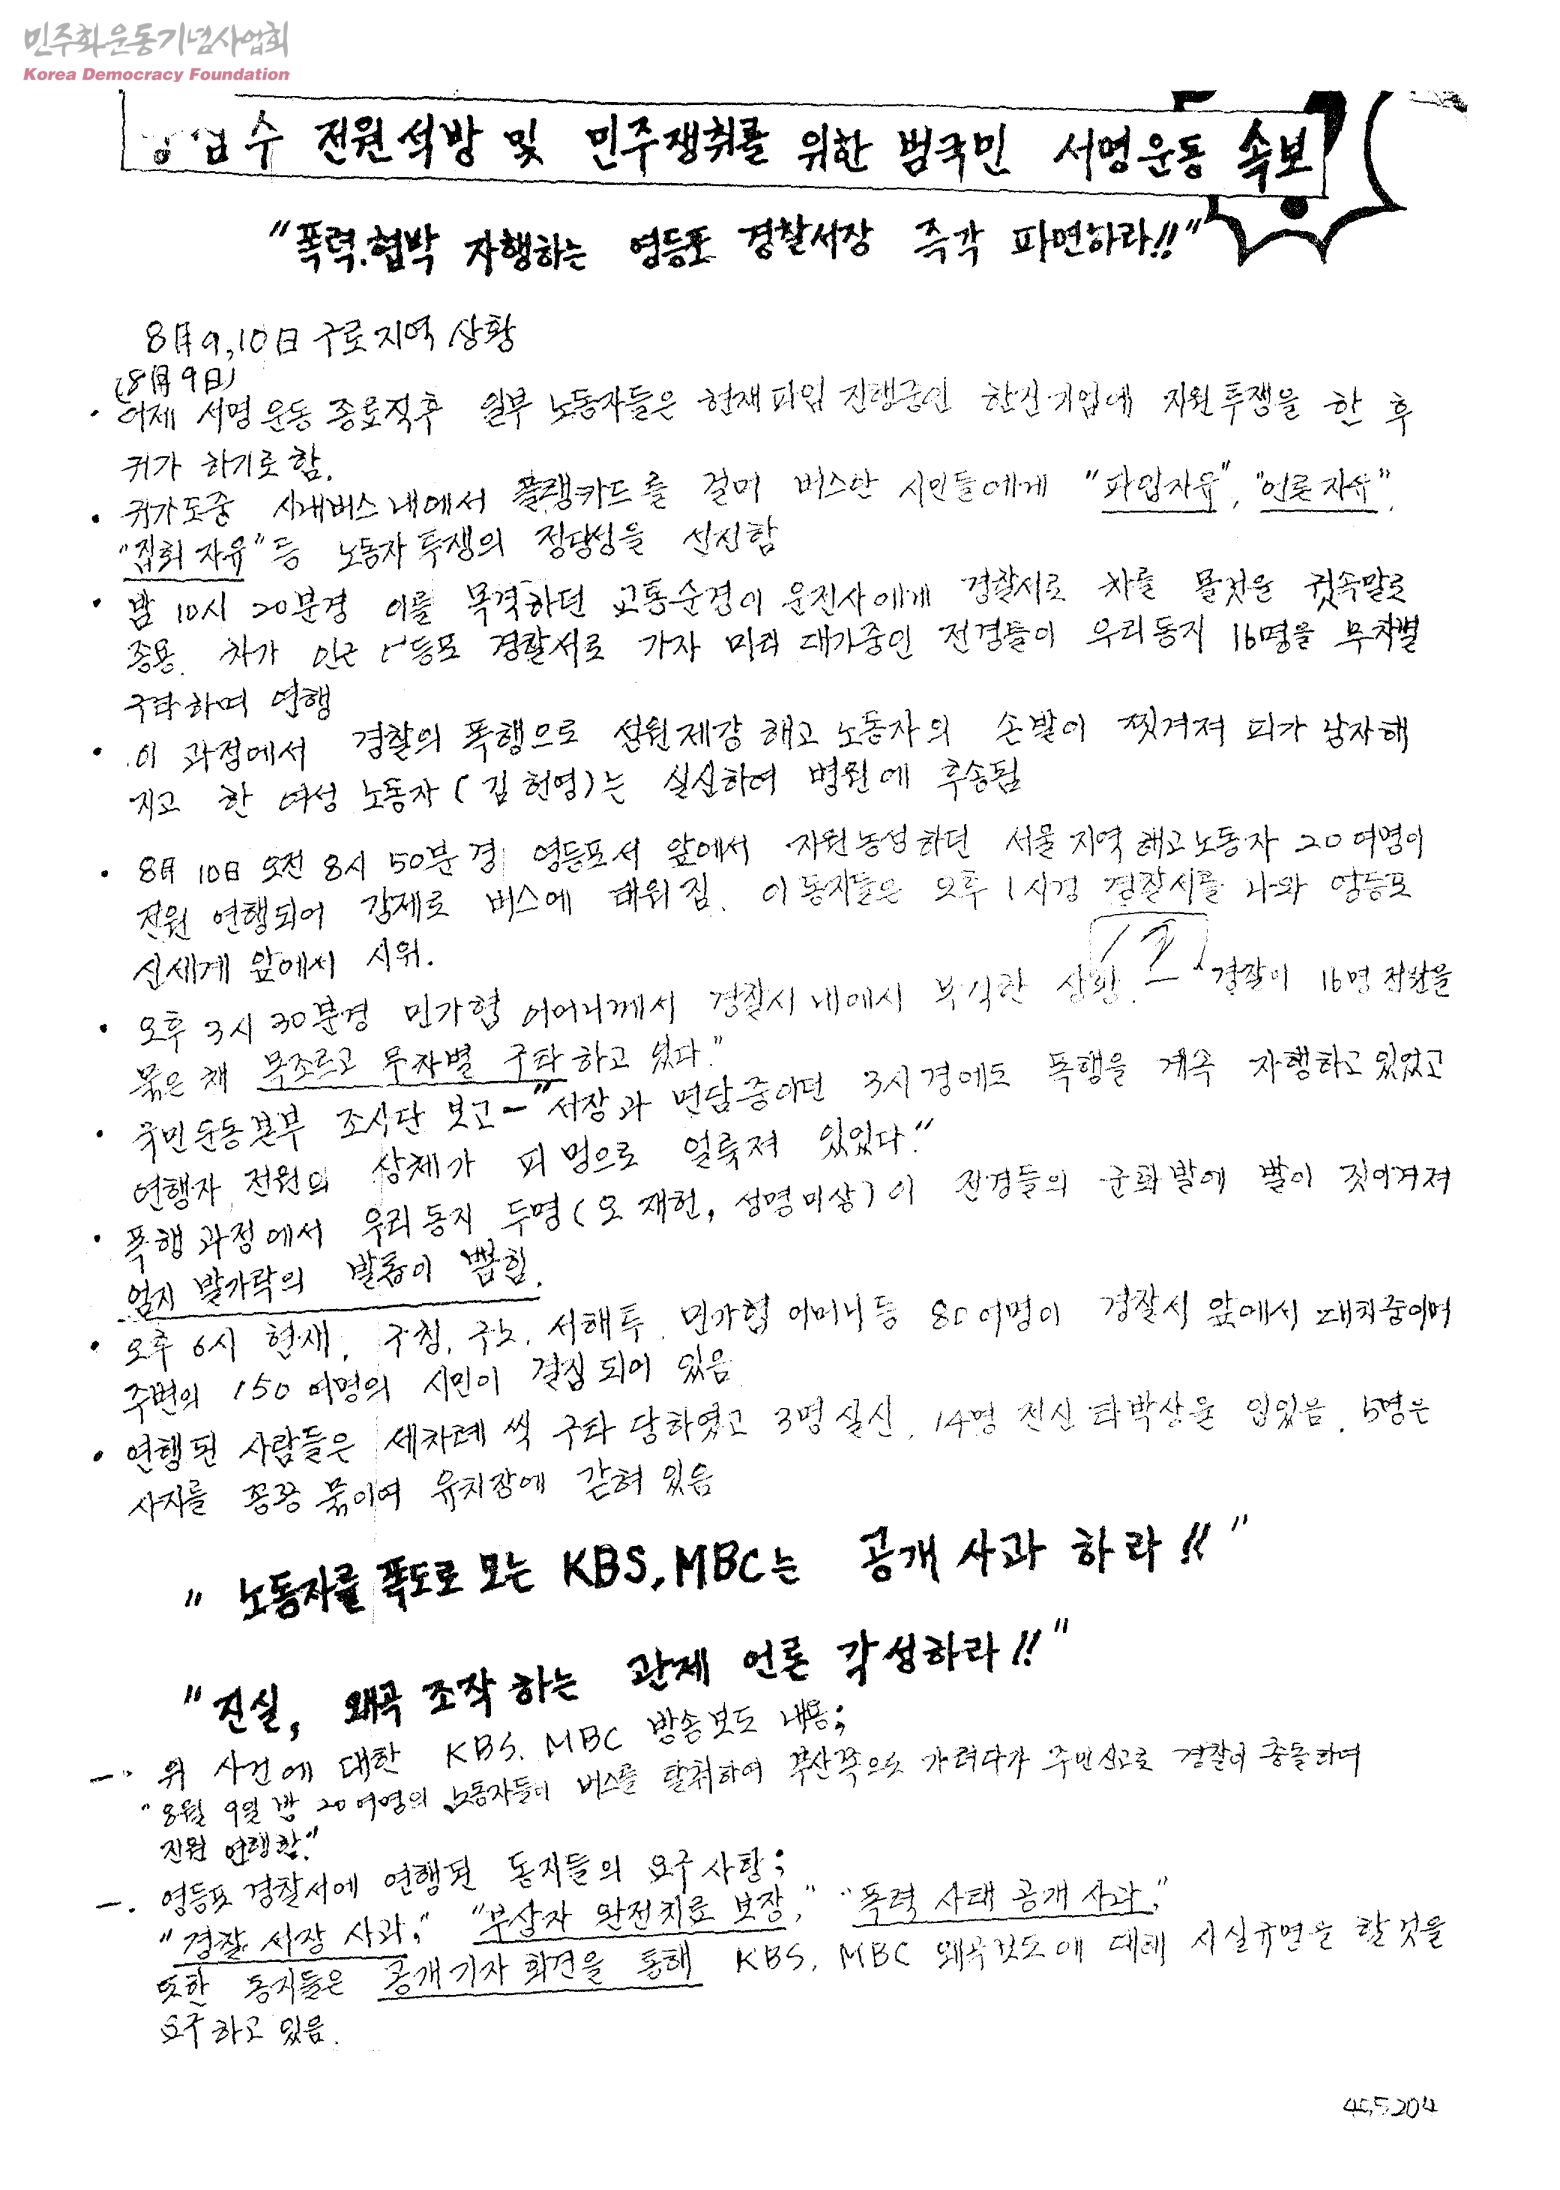 민주화운동기념사업회
Korea Democracy Foundation
수 전원석방 및 민주쟁취를 위한 범국민 서명운동 속보
"폭력.협박 자행하는 영등포 경찰서장 즉각 파면하라!!"
8月9,10日 구로지역 상황
(8月9日)
· 어제 서명운동 종로직후 일부 노동자들은 현재 파업 진행중인 한신기업에 지원투쟁을 한 후
귀가 하기로 함.
· 귀가도중 시내버스내에서 플랭카드를 걸며 버스안 시민들에게 "파업자유", "언론자유",
"집회 자유"등 노동자 투쟁의 정당성을 선전함
· 밤 10시 20분경 이를 목격하던 교통순경이 운전사에게 경찰서로 차를 몰것을 귓속말로
종용. 차가 인근 영등포 경찰서로 가자 미리 대기중인 전경들이 우리동지 16명을 무차별
구타하며 연행
· 이 과정에서 경찰의 폭행으로 성원제강 해고 노동자의 손발이 찢겨져 피가 낭자해
지고 한 여성 노동자(김현영)는 실신하여 병원에 후송됨
· 8月 10日 오전 8시 50분경 영등포서 앞에서 지원농성하던 서울지역 해고노동자 20여명이
전원 연행되어 강제로 버스에 태워짐. 이 동지들은 오후 1시경 경찰서를 나와 영등포
신세계 앞에서 시위.
· 오후 3시 30분경 민가협 어머니께서 경찰서 내에서 목격한 상황. 경찰이 16명 전원을
묶은 채 목조르고 무차별 구타하고 있다."
· 국민운동본부 조사단 보고-"서장과 면담중이던 3시경에도 폭행을 계속 자행하고 있었고
연행자 전원의 상체가 피멍으로 얼룩져 있었다."
· 폭행 과정에서 우리동지 두명(오재헌, 성명미상)이 전경들의 군화발에 발이 짓이겨져
엄지 발가락의 발톱이 뽑힘.
· 오후 6시 현재, 구청, 구노, 서해투, 민가협 어머니등 80여명이 경찰서 앞에서 대치중이며
주변의 150여명의 시민이 결집되어 있음
· 연행된 사람들은 세차례씩 구타 당하였고 3명실신, 14명 전신 타박상을 입었음. 5명은
사지를 꽁꽁 묶이여 유치장에 갇혀 있음
" 노동자를 폭도로 모는 KBS, MBC는 공개 사과 하라!!"
"진실, 왜곡 조작 하는 관제 언론 각성하라!!"
－. 위 사건에 대한 KBS. MBC 방송보도 내용;
"8월 9일 밤 20여명의 노동자들이 버스를 탈취하여 부산쪽으로 가려다가 주민신고로 경찰이 충돌하여
전원 연행함."
－. 영등포 경찰서에 연행된 동지들의 요구사항;
"경찰 서장 사과," "부상자 완전치료 보장," "폭력 사태 공개 사과,"
또한 동지들은 공개기자 회견을 통해 KBS, MBC 왜곡보도에 대해 사실규명을 할 것을
요구하고 있음.
465204